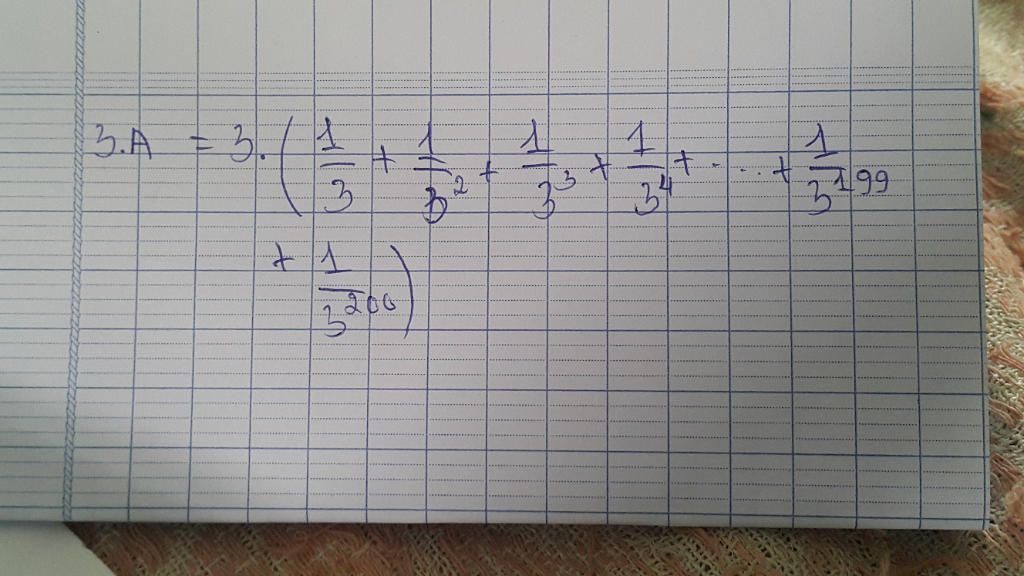 3.A = 3. ( 1/3 + 1/3^2 + 1/3^3 + 1/3^4 + . . . + 1/3^199
+ 1/3^200 )